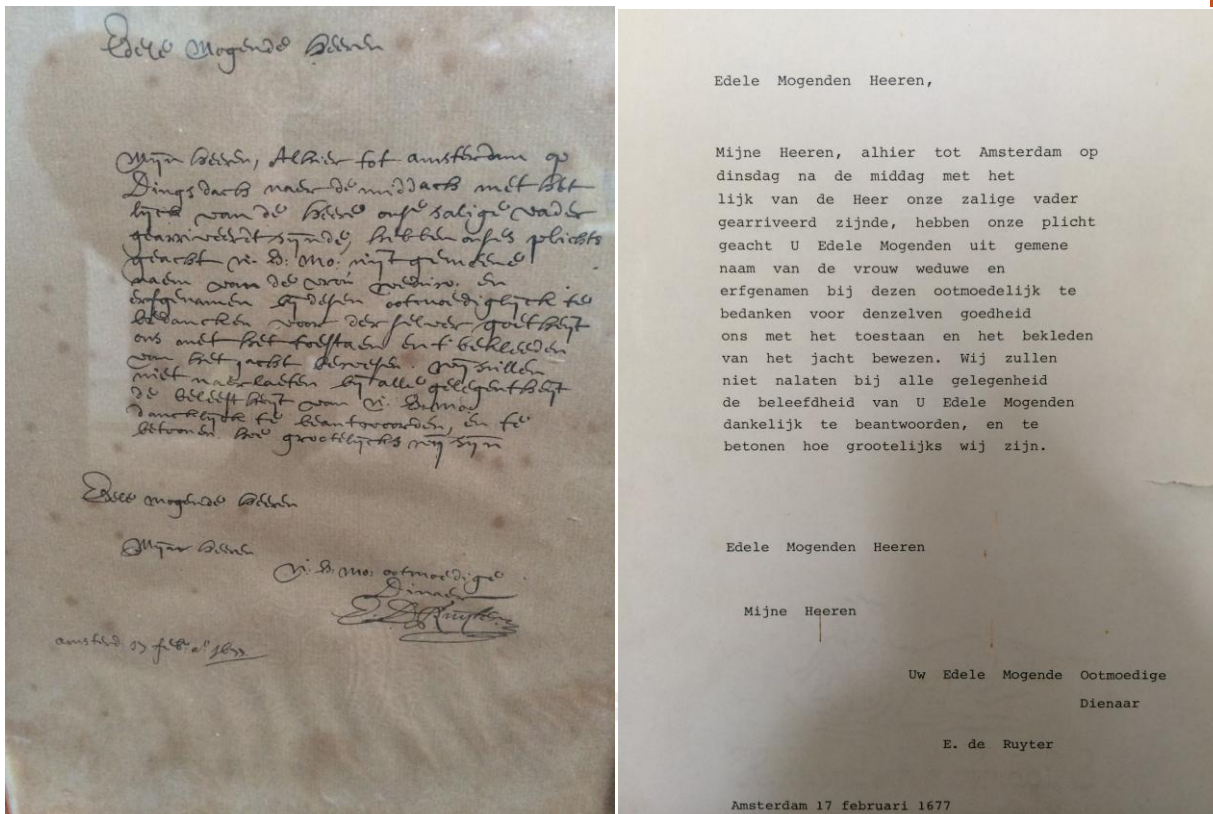 Edele Mogende heeren
Mijn heeren, Alhier tot amsterdam op
Dingsdach naer de middach met het
lijck van de heere onse salige vader
gearriveert sijnde, hebben onses plichts
geacht U. E. Mo. uijt gemeene
naem van de vrou weduw. en
erfgenamen bij desen ootmoediglijck te
bedancken voor der selver goetheijt
ons met het toestaen en t bekleeden
van het jacht bewesen. wij sullen
niet naerlaeten bij alle gelegentheijt
de beleeftheijt van U. E. Mo.
dancklijck te beantwoorden, en te
betoonen hoe grootelijcks wij sijn
Edele mogende heeren
Mijne heeren
U. E. Mo. ootmoedige
Dinaer
E. de Ruyter
amsterd. 17 feb. ao. 1677
Edele Mogenden Heeren,
Mijne Heeren, alhier tot Amsterdam op
dinsdag na de middag met het
lijk van de Heer onze zalige vader
gearriveerd zijnde, hebben onze plicht
geacht U Edele Mogenden uit gemene
naam van de vrouw weduwe en
erfgenamen bij dezen ootmoedelijk te
bedanken voor denzelven goedheid
ons met het toestaan en het bekleden
van het jacht bewezen. Wij zullen
niet nalaten bij alle gelegenheid
de beleefdheid van U Edele Mogenden
dankelijk te beantwoorden, en te
betonen hoe grootelijks wij zijn.
Edele Mogenden Heeren
Mijne Heeren
Uw Edele Mogende Ootmoedige
Dienaar
E. de Ruyter
Amsterdam 17 februari 1677